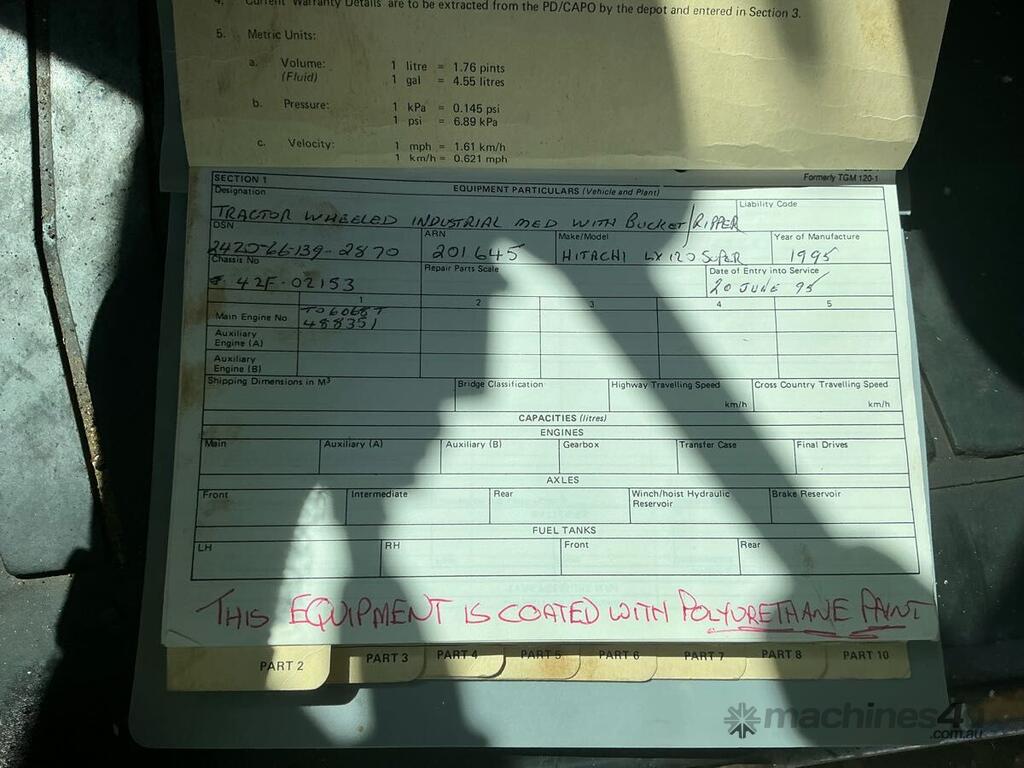 4. Current Warranty Details are to be extracted from the PD/CAPO by the depot and entered in Section 3.
5. Metric Units:
a. Volume: 1 litre = 1.76 pints
(Fluid) 1 gal = 4.55 litres
b. Pressure: 1 kPa = 0.145 psi
1 psi = 6.89 kPa
c. Velocity: 1 mph = 1.61 km/h
1 km/h = 0.621 mph
Formerly TGM 120-1
SECTION 1 EQUIPMENT PARTICULARS (Vehicle and Plant)
Designation Liability Code
TRACTOR WHEELED INDUSTRIAL MED WITH BUCKET/RIPPER
DSN ARN Make/Model Year of Manufacture
2420-66-139-2870 201645 HITACHI LX120 SUPER 1995
Chassis No Repair Parts Scale Date of Entry into Service
42F-02153 20 JUNE 95
1 2 3 4 5
Main Engine No
488351
Auxiliary Engine (A)
Auxiliary Engine (B)
Shipping Dimensions in M³ Bridge Classification Highway Travelling Speed Cross Country Travelling Speed
km/h km/h
CAPACITIES (litres)
ENGINES
Main Auxiliary (A) Auxiliary (B) Gearbox Transfer Case Final Drives
AXLES
Front Intermediate Rear Winch/hoist Hydraulic Reservoir Brake Reservoir
FUEL TANKS
LH RH Front Rear
THIS EQUIPMENT IS COATED WITH POLYURETHANE PAINT
PART 2 PART 3 PART 4 PART 5 PART 6 PART 7 PART 8 PART 10
machines4u
.com.au